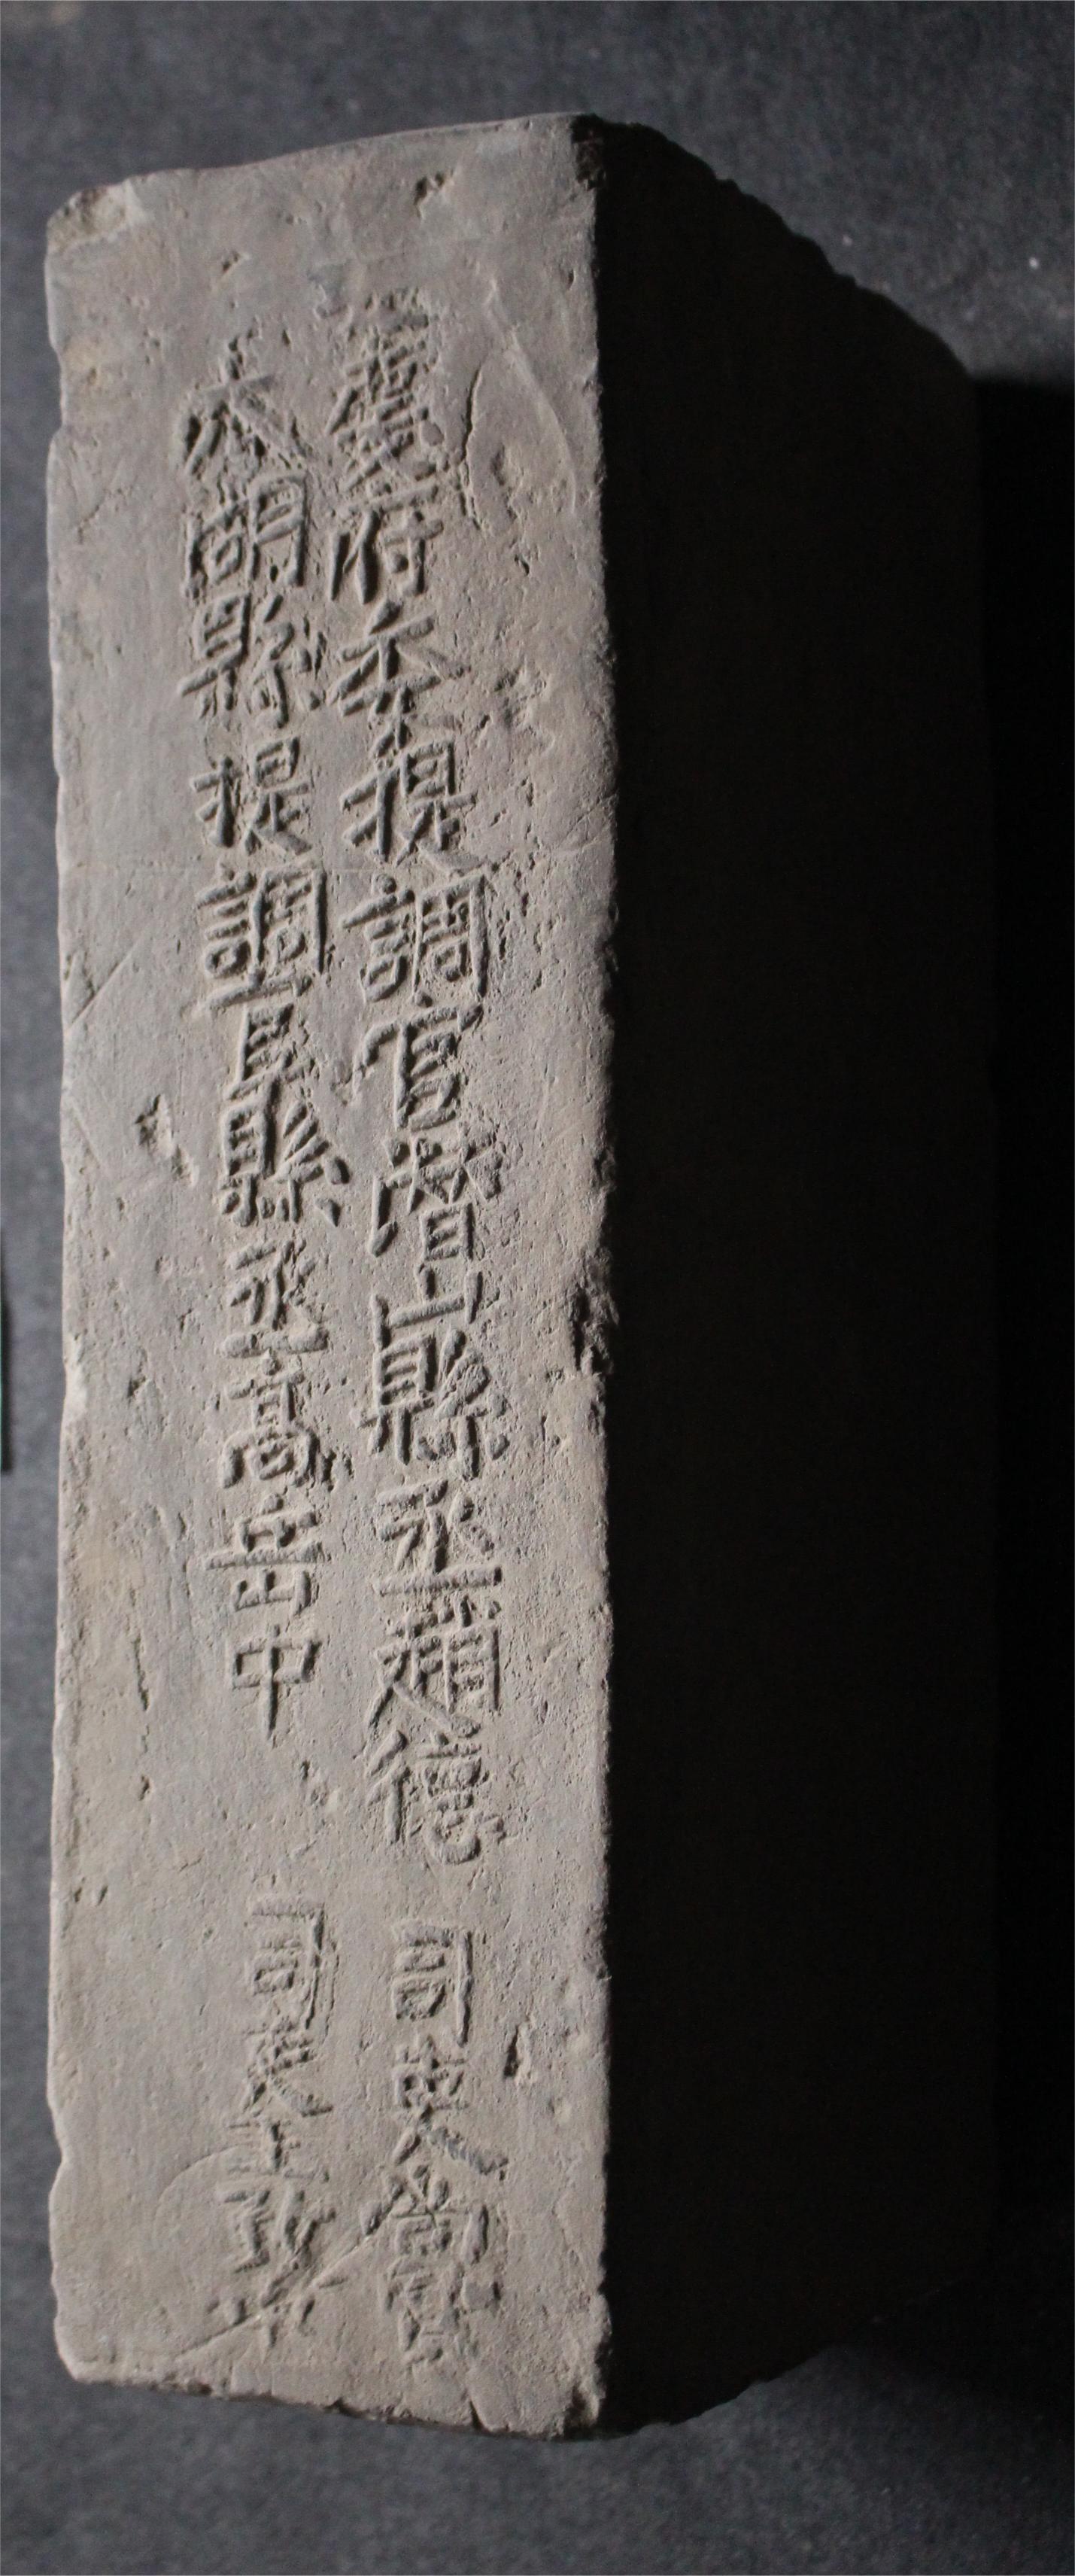 慶府委提調官潛山縣丞趙德 司吏尚
太湖縣提調官縣丞高岳中 司吏王